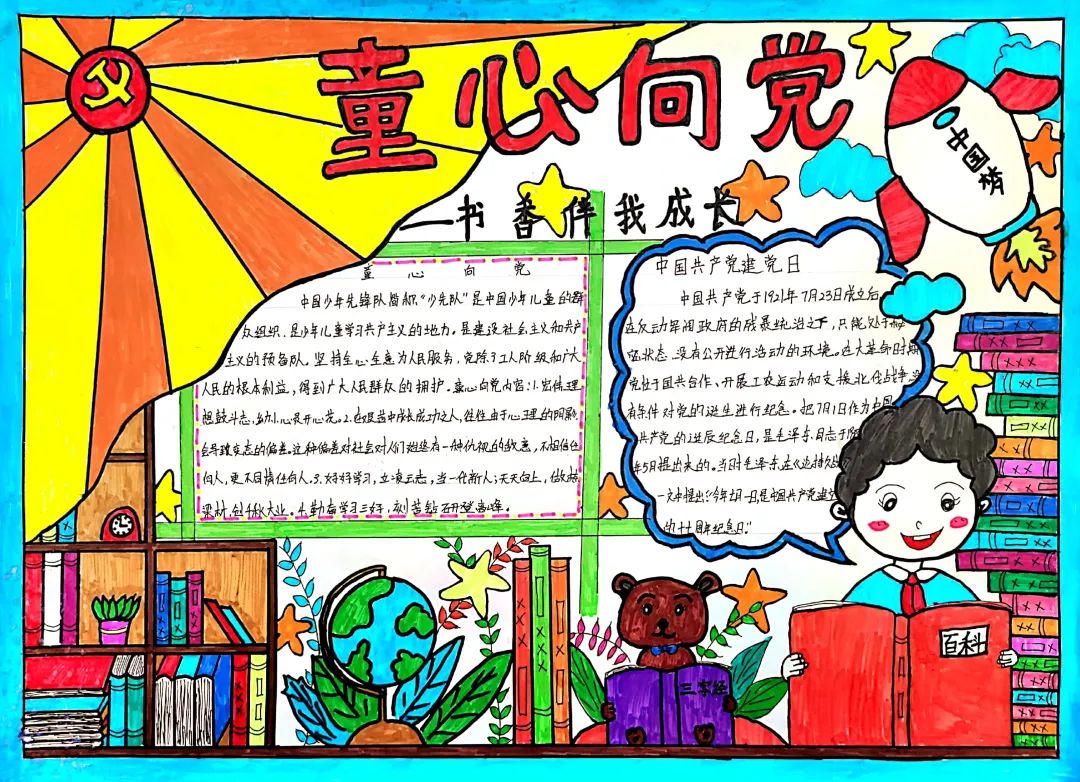 童心向党
—书香伴我成长
中国梦
童心向党
中国少年先锋队简称“少先队”是中国少年儿童的群
众组织.是少年儿童学习共产主义的地方.是建设社会主义和共产
主义的预备队.坚持全心全意为人民服务,党除了工人阶级和广大
人民的根本利益,得到广大人民群众的拥护.童心向党内容:1.
想鼓斗志,幼小心灵开心花.2.
会导致变态的偏差.这种偏差对社会对他们
何人,更不同情任何人.3.好好学习,立凌云志,当一代新人;天天向上,做栋
梁材,创千秋大业.4.勤奋学习三好,刻苦钻研登高峰.
中国共产党建党日
中国共产党于1921年7月23日成立后,
在反动军阀政府的残暴统治之下,只能处于秘
密状态,没有公开进行活动的环境.在大革命时期
党忙于国共合作、开展工农运动和支援北伐战争,没
有条件对党的诞生进行纪念.把7月1日作为中国
共产党的诞辰纪念日,是毛泽东同志于
年5月提出来的.当时毛泽东在《论持久战
一文中提出:“今年七月一日是中国共产党建立
的十七周年纪念日.”
三字经
百科